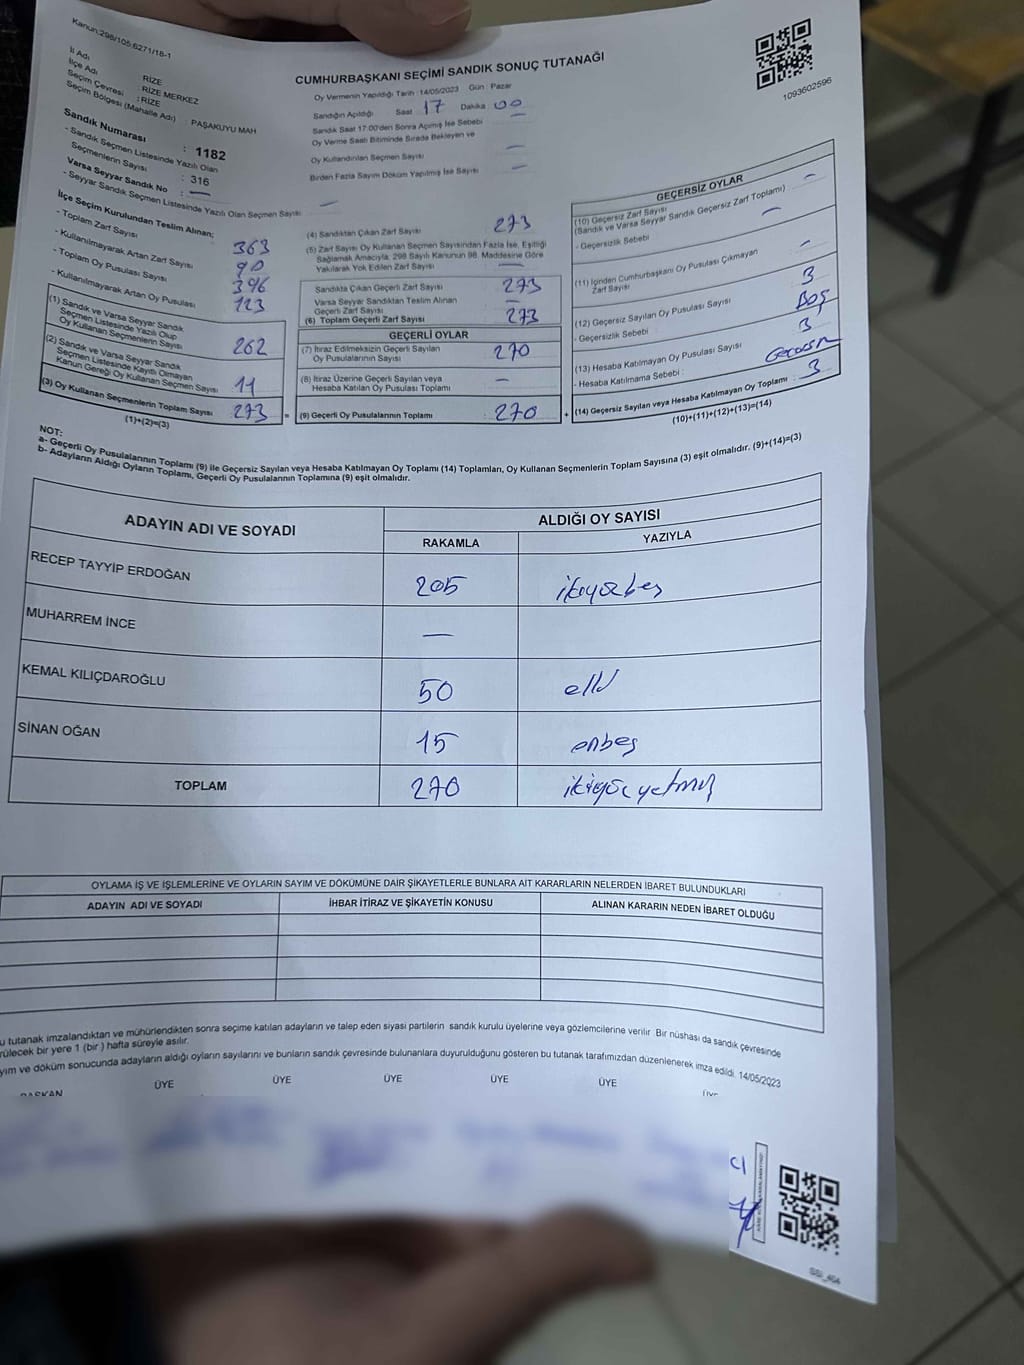 Kanun:298/105,6271/18-1
CUMHURBAŞKANI SEÇİMİ SANDIK SONUÇ TUTANAĞI
1093602596
İl Adı : RİZE
İlçe Adı : RİZE MERKEZ
Seçim Çevresi : RİZE
Seçim Bölgesi (Mahalle Adı) : PAŞAKUYU MAH
Sandık Numarası : 1182
- Sandık Seçmen Listesinde Yazılı Olan
Seçmenlerin Sayısı : 316
Varsa Seyyar Sandık No : —
- Seyyar Sandık Seçmen Listesinde Yazılı Olan Seçmen Sayısı : —
Oy Vermenin Yapıldığı Tarih : 14/05/2023 Gün : Pazar
Sandığın Açıldığı Saat 17 Dakika 00
Sandık Saat 17:00'den Sonra Açılmış İse Sebebi —
Oy Verme Saati Bitiminde Sırada Bekleyen ve
Oy Kullandırılan Seçmen Sayısı —
Birden Fazla Sayım Döküm Yapılmış İse Sayısı —
İlçe Seçim Kurulundan Teslim Alınan;
- Toplam Zarf Sayısı 363
- Kullanılmayarak Artan Zarf Sayısı 90
- Toplam Oy Pusulası Sayısı 396
- Kullanılmayarak Artan Oy Pusulası 123
(1) Sandık ve Varsa Seyyar Sandık
Seçmen Listesinde Yazılı Olup
Oy Kullanan Seçmenlerin Sayısı 262
(2) Sandık ve Varsa Seyyar Sandık
Seçmen Listesinde Kayıtlı Olmayan
Kanun Gereği Oy Kullanan Seçmen Sayısı 11
(3) Oy Kullanan Seçmenlerin Toplam Sayısı 273
(1)+(2)=(3)
(4) Sandıktan Çıkan Zarf Sayısı 273
(5) Zarf Sayısı Oy Kullanan Seçmen Sayısından Fazla İse, Eşitliği
Sağlamak Amacıyla; 298 Sayılı Kanunun 98. Maddesine Göre
Yakılarak Yok Edilen Zarf Sayısı —
Sandıkta Çıkan Geçerli Zarf Sayısı 273
Varsa Seyyar Sandıktan Teslim Alınan
Geçerli Zarf Sayısı —
(6) Toplam Geçerli Zarf Sayısı 273
GEÇERLİ OYLAR
(7) İtiraz Edilmeksizin Geçerli Sayılan
Oy Pusulalarının Sayısı 270
(8) İtiraz Üzerine Geçerli Sayılan veya
Hesaba Katılan Oy Pusulası Toplamı —
= (9) Geçerli Oy Pusulalarının Toplamı : 270
GEÇERSİZ OYLAR
(10) Geçersiz Zarf Sayısı
(Sandık ve Varsa Seyyar Sandık Geçersiz Zarf Toplamı) —
- Geçersizlik Sebebi —
(11) İçinden Cumhurbaşkanı Oy Pusulası Çıkmayan
Zarf Sayısı —
(12) Geçersiz Sayılan Oy Pusulası Sayısı 3
- Geçersizlik Sebebi : Boş
(13) Hesaba Katılmayan Oy Pusulası Sayısı 3
- Hesaba Katılmama Sebebi :
+ (14) Geçersiz Sayılan veya Hesaba Katılmayan Oy Toplamı : 3
(10)+(11)+(12)+(13)=(14)
NOT:
a- Geçerli Oy Pusulalarının Toplamı (9) ile Geçersiz Sayılan veya Hesaba Katılmayan Oy Toplamı (14) Toplamları, Oy Kullanan Seçmenlerin Toplam Sayısına (3) eşit olmalıdır. (9)+(14)=(3)
b- Adayların Aldığı Oyların Toplamı, Geçerli Oy Pusulalarının Toplamına (9) eşit olmalıdır.
ADAYIN ADI VE SOYADI ALDIĞI OY SAYISI
RAKAMLA YAZIYLA
RECEP TAYYİP ERDOĞAN 205 ikiyüzbeş
MUHARREM İNCE —
KEMAL KILIÇDAROĞLU 50 elli
SİNAN OĞAN 15 onbeş
TOPLAM 270 ikiyüz yetmiş
OYLAMA İŞ VE İŞLEMLERİNE VE OYLARIN SAYIM VE DÖKÜMÜNE DAİR ŞİKAYETLERLE BUNLARA AİT KARARLARIN NELERDEN İBARET BULUNDUKLARI
ADAYIN ADI VE SOYADI İHBAR İTİRAZ VE ŞİKAYETİN KONUSU ALINAN KARARIN NEDEN İBARET OLDUĞU
u tutanak imzalandıktan ve mühürlendikten sonra seçime katılan adayların ve talep eden siyasi partilerin sandık kurulu üyelerine veya gözlemcilerine verilir. Bir nüshası da sandık çevresinde
rülecek bir yere 1 (bir ) hafta süreyle asılır.
yım ve döküm sonucunda adayların aldığı oyların sayılarını ve bunların sandık çevresinde bulunanlara duyurulduğunu gösteren bu tutanak tarafımızdan düzenlenerek imza edildi. 14/05/2023
BAŞKAN ÜYE ÜYE ÜYE ÜYE ÜYE ÜYE
SSI_404